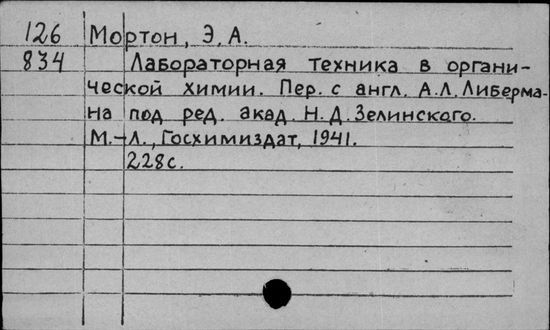 126 Мортон, Э. А.
834 Лабораторная техника в органи-
ческой химии. Пер. с англ. А.Л. Либерма-
на под ред. акад. Н.Д. Зелинского.
М.-Л., Госхимиздат, 1941.
228с.